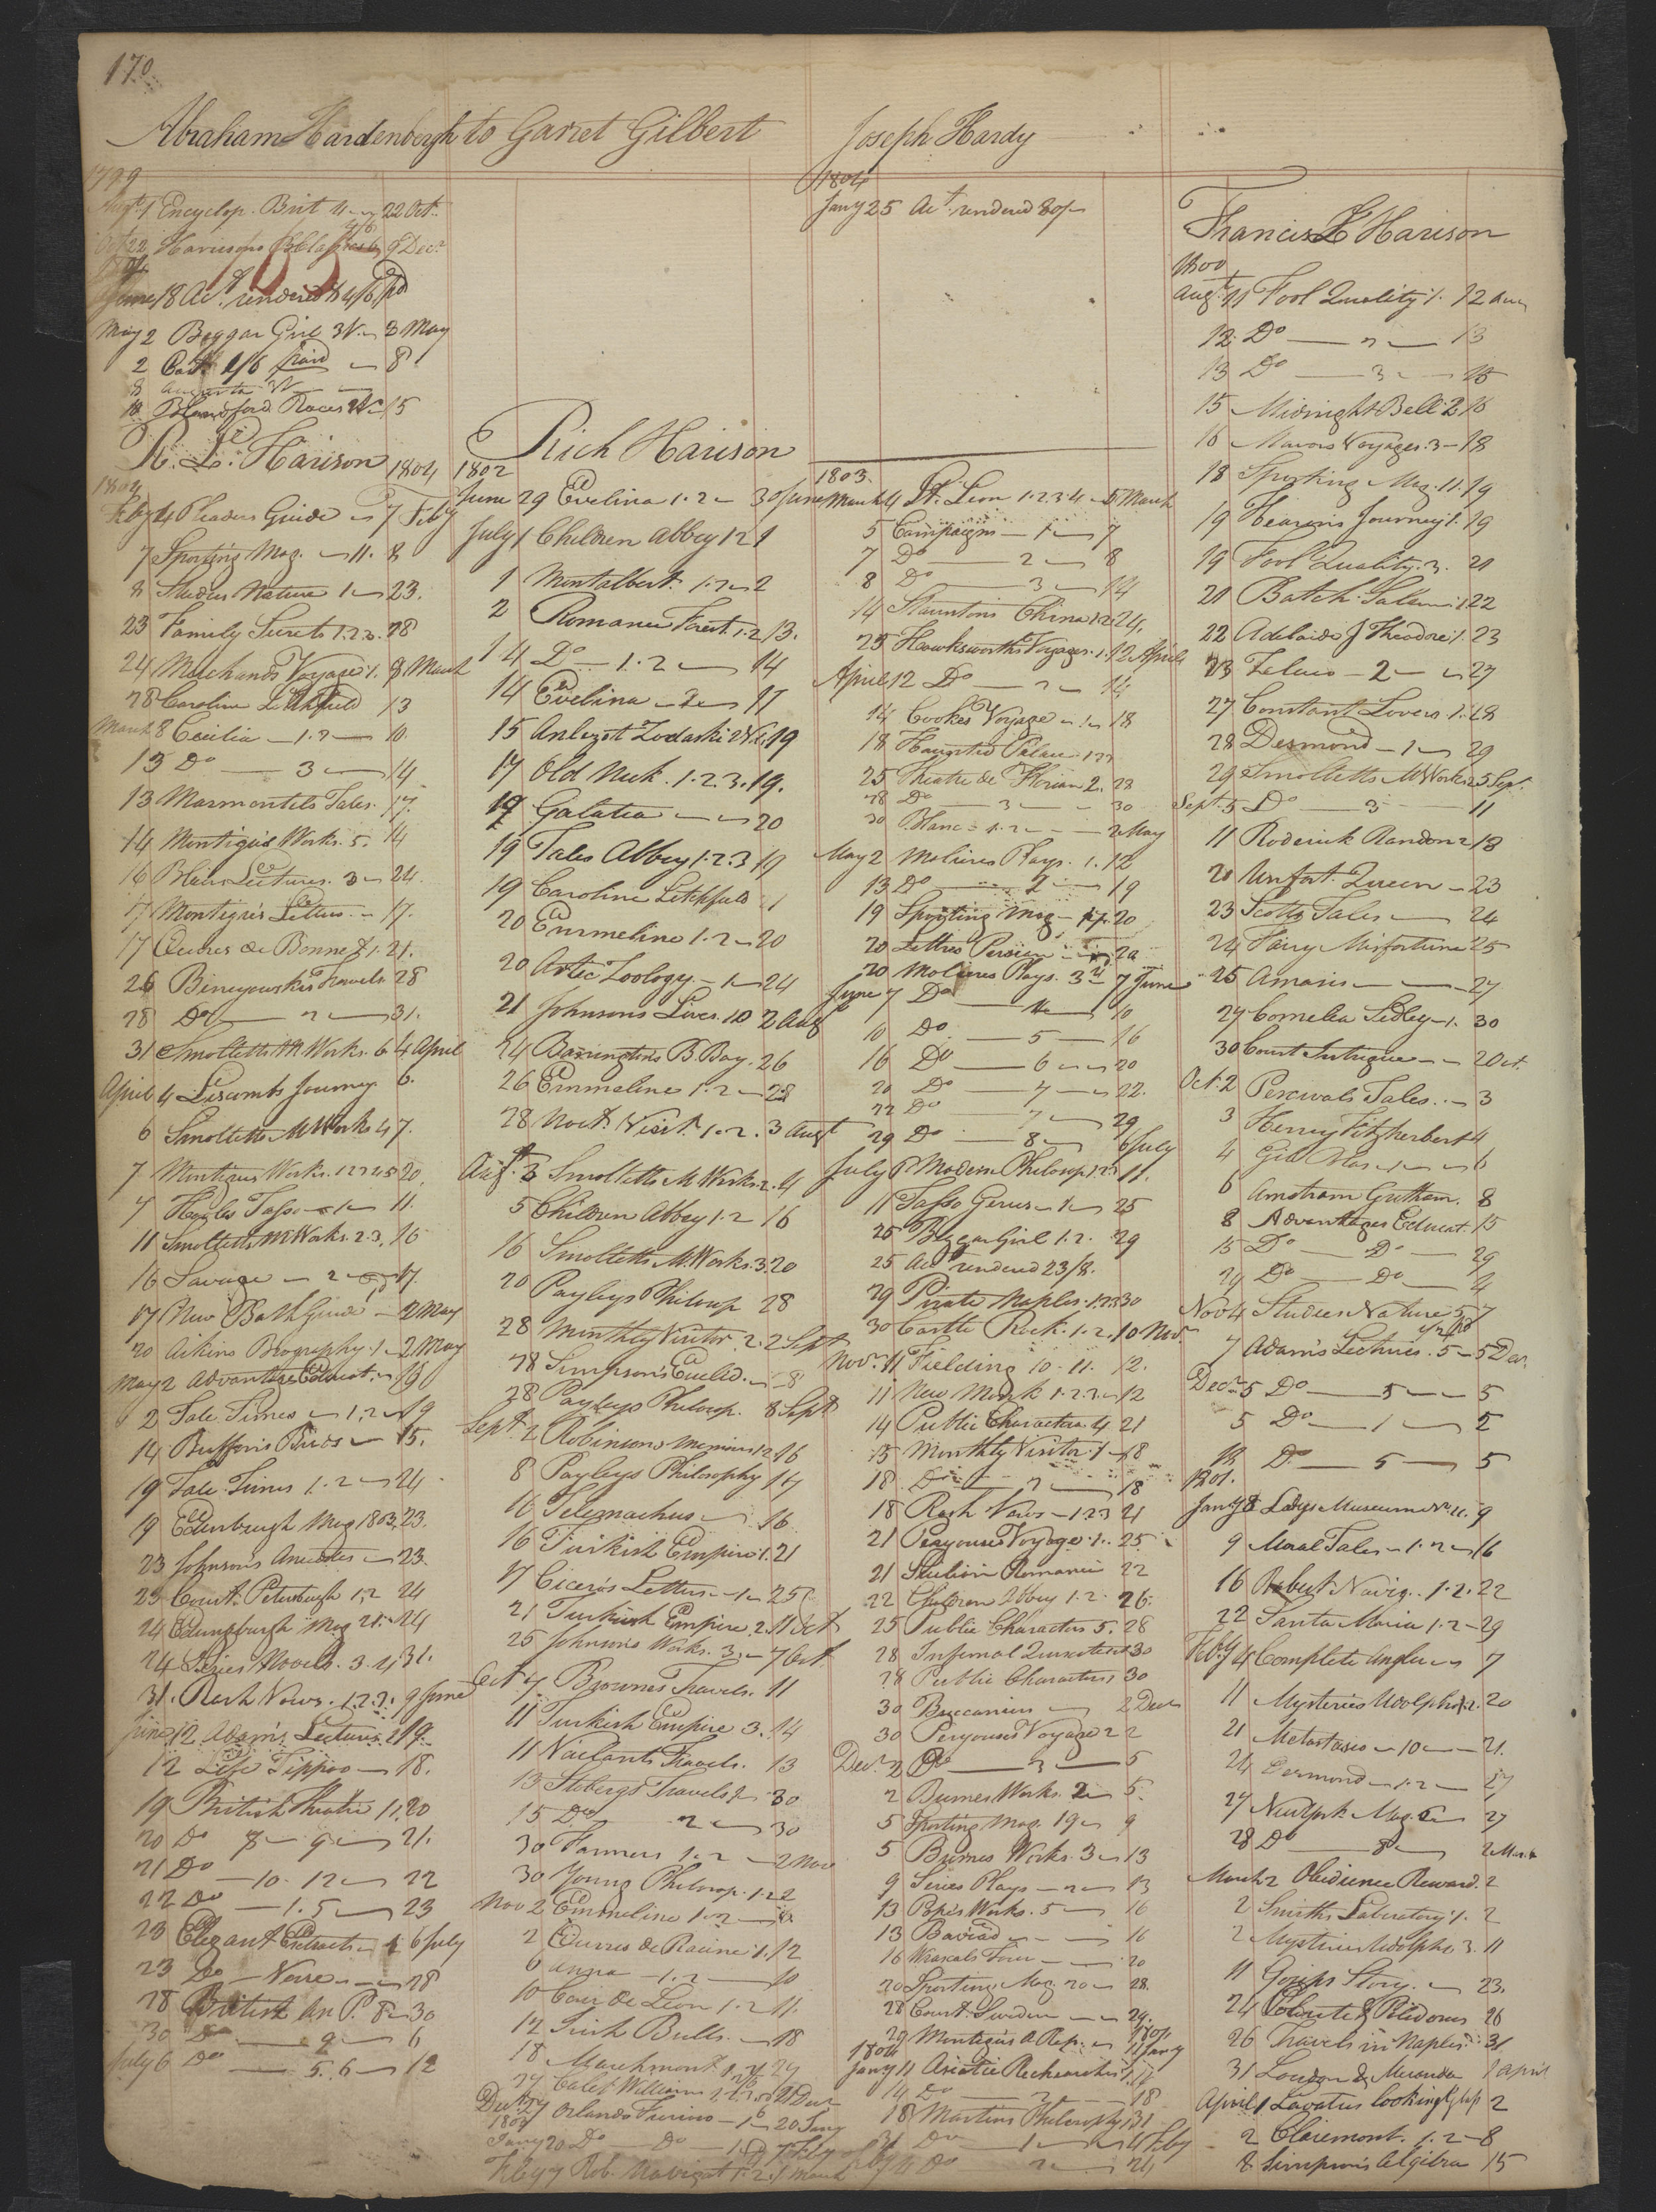 170
Abraham Hardenbergh to Garret Gilbert
1799
Augt 1 Encyclop. Brit 4 22 Oct.
Oct 22 Harrison's 9 Decr
June 18 Act rendered 8 4/6 pd
May 2 Beggar Girl 3V. 3 May
2 Cath 1/6 paid 8
8 Augusta
10 Blandford Races 2V 15
R. L. Harison 1804
1804
Feby 4 Pleaders Guide 7 Feby
7 Sporting Mag. 11. 8
8 Studies Nature 1 23.
23 Family Secrets 1.2.3. 28
24 Meichands Voyage 1. 8 March
28 Caroline Litchfield 13
March 8 Cecilia 1.2 10
13 Do 3 14
13 Marmontels Tales. 17.
14 Montiques Works. 5. 14
16 Blairs Lectures. 3 24.
17 Montigues Letters. 17.
17 Oeuvres de Bonnet 1. 21.
26 Binyouskis Travels. 28
28 Do 2 31.
31 Smolletts M Works. 6 4 April
April 4 Liscombs Journey 6.
6 Smolletts M Works 4 7.
7 Montiques Works. 1 2 3 4 5 20.
7 Hooles Tasso 1 11.
11 Smolletts M Works. 2 3. 16
16 Savage 2 17.
17 New Bath Guide 2 May
20 Aikins Biography 1 2 May
May 2 Advantage Educat. 19
2 Tale Times 1,2 19
14 Buffon's Birds 15.
19 Tale Times 1.2 24
19 Edenburgh Mag 1803. 23.
23 Johnson's Anecdotes 23.
23 Court Petersburgh 1,2 24
24 Edingburgh Mag 21. 24
24 Series Novels. 3.4 31.
31. Rash Vows. 1.2.3. 9 June
June 12 Adam's Lectures. 2 19.
12 Life Tippoo 18.
19 British Theatre 1. 20
20 Do 8 9 21.
21 Do 10. 12 22
22 Do 1. 5 23
23 Elegant Extracts 6 July
23 Do Verse 28
28 British An P. 8 30
30 Do 9 6
July 6 Do 5.6 12
Rich Harison
1802
June 29 Evelina 1.2 30 June
July 1 Children Abbey 1 2 1
1 Montalbert 1.2 2
2 Romance Forest 1.2 13.
14 Do 1.2 14
14 Evelina 2 17
15 Anlezit Zodaski 2V. 19
17 Old Nick. 1.2.3. 19.
19 Galatea 20
19 Tales Abbey 1.2.3 19
19 Caroline Litchfield 21
20 Emmeline 1.2 20
20 Artic Zoology 1 24
21 Johnsons Lives. 10 2 Aug
24 Barringtons B. Bay. 26
26 Emmeline 1.2 28
28 Noct. Visit 1.2. 3 Augt
Augt 3 Smolletts M Works. 2. 4
5 Children Abbey 1.2 16
16 Smolletts M. Works. 3. 20
20 Payleys Philosop 28
28 Monthly Visitor. 2. 2 Sept
28 Simpsons Euclid. 8
28 Payleys Philosop. 8 Sept
Sept. 2 Robinsons Memoirs 1 2 16
8 Payleys Philosophy 17
16 Telemachus 16
16 Turkish Empire 1. 21
17 Cicero's Letters 1 25
21 Turkish Empire. 2. 11 Oct
25 Johnson's Works. 3. 7 Oct.
Oct 7 Brownes Travels. 11
11 Turkish Empire 3. 14
11 Vailants Travels. 13
13 Stobergs Travels 1 30
15 Do 2 30
30 Farmers 1.2 2 Nov
30 Young Philosop. 1.2 2
Nov 2 Emmeline 1.2 6
2 Oeuvres de Racine 1. 12
6 Anna 1.2 10
10 Coeur De Leon 1.2 11.
12 Irish Bulls. 18
18 Marchmont
27 Caleb Williams
Decr 27 Orlando Furioso 1 20 Jany
1803
Jany 20 Do Do 7 Feby
Feby 7 Rob. Navigat 1.2. 1 March
Joseph Hardy
1804
Jany 25 Act rendered 80/
1803.
March 4 St. Leon 1.2.3.4 5 March
5 Campaigns 1 7
7 Do 2 8
8 Do 3 14
14 Stauntons China 1.2. 24.
25 Hawksworths Voyages. 1. 12 April
April 12 Do 2 14
14 Cookes Voyage 1 18
18 Haunted Palace 1 2 3
25 Theatre de Florian 2. 28
28 Do 3 30
30 Blanc 1.2 2 May
May 2 Molieres Plays. 1. 12
13 Do 2 19
19 Sporting Mag 20
20 Lettres Persian
20 Molieres Plays. 3 7 June
June 7 Do 4 10
10 Do 5 16
16 Do 6 20
20 Do 7 22.
22 Do 7 29
29 Do 8 6 July
July 6 Modern Philosop 1.2.3 11.
11 Tasso Gerus 1 25
25 Beggar Girl 1.2. 29
25 Act rendered 23/8.
29 Pirate Naples. 1.2.3 30
30 Castle Rock. 1.2. 10 Nov.
Novr. 11 Fielding 10. 11. 12.
11 New Monk 1.2.3 12
14 Public Characters. 4. 21
15 Monthly Visitor. 1 18
18. Do 2 18
18 Rash Vows 1.2.3 21
21 Peryouses Voyage. 1. 25
21 Sicilian Romance 22
22 Children Abbey 1.2. 26.
25 Public Characters 5. 28
28 Infernal Quixote 30
28 Public Characters 30
30 Buccaniers 2 Decr
30 Peryouses Voyage 2 2
Decr. 2 Do 3 5
2 Burnes Works. 2 5.
5 Sporting Mag. 19 9
5 Burnes Works. 3 13
9 Series Plays 2 13
13 Pope's Works. 5 16
13 Baviad 16
16 Wraxals Tour 20
20 Sporting Mag 20 28.
28 Court Sweden 29.
29 Montagus A Rep. 1804
1804 11 Jany
Jany 11 Asiatic Recherches 1. 14
14 Do 2 18
18 Martins Philosophy 1 31
31 Do 1 4 Feby
Feby 4 Do 2 24
Francis L Harison
1800
Augt 11 Fool Quality 1. 12 Aug
12 Do 2 13
13 Do 3 15
15 Midnight Bell 2 16
16 Mavors Voyages. 3 18
18 Sporting Mag. 11. 19
19 Hearns Journey 1. 19
19 Fool Quality. 3. 21
21 Batch. Salam 1. 22
22 Adelaide & Theodore 1. 23
23 Zeluco 2 27
27 Constant Lovers 1. 28
28 Desmond 1 29
29 Smolletts M Works 2 5 Sept.
Sept. 5 Do 3 11
11 Roderick Random 2 18
20 Unfort. Queen 23
23 Scotts Tales 24
24 Fairy Misfortune 25
25 Amaris 27
27 Cornelia Sedley 1. 30
30 Court Intrigue 2 Oct.
Oct. 2 Percivals Tales. 3
3 Henry Fitzherbert 4
4 Gil Blas 1 6
6 Amstram Gretham. 8
8 Advantages Educat. 15
15 Do Do 29
29 Do Do 4
Nov 4 Studies Nature 5 7
7 Adam's Lectures. 5 5 Dec.
Decr 5 Do 3 5
5 Do 1 5
18 Do 5 5
1801.
Jany 8 Ladys Museum 9
9 Moral Tales 1.2 16
16 Robert Navig. 1.2. 22
22 Santa Maria 1.2 29
Feby 4 Complete Angler 7
11 Mysteries Udolpho 1.2. 20
21 Metastasio 10 21.
24 Desmond 1.2 27
27 New York Mag. 6 27
28 Do 8 2 March
March 2 Obedience Reward. 2
2 Smiths Laboratory 1. 2
2 Mysteries Udolpho 3. 11
11 Gosips Story. 23.
24 Polcarite & Polidorus 26
26 Travels in Naples. 31
31 Louisa & Miranda 1 April
April 1 Lavatus looking glass 2
2 Claremont. 1.2 8
8 Simpson's Algibra 15